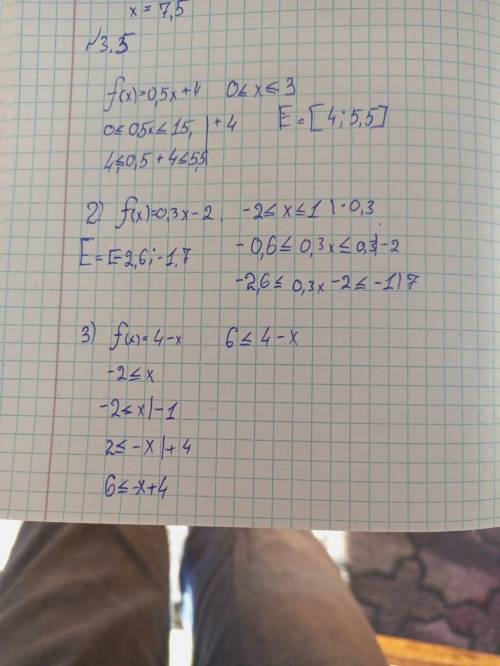 x = 7,5
№3.5
f(x)=0,5x+4 0≤x≤3
0≤0,5x≤1,5, |+4 E=[4;5,5]
4≤0,5+4≤5,5
2) f(x)=0,3x-2, -2≤x≤1 | ·0,3
E=[-2,6;-1,7 -0,6≤0,3x≤0,3|-2
-2,6≤0,3x-2≤-1,7
3) f(x)=4-x 6≤4-x
-2≤x
-2≤x|-1
2≤-x|+4
6≤-x+4